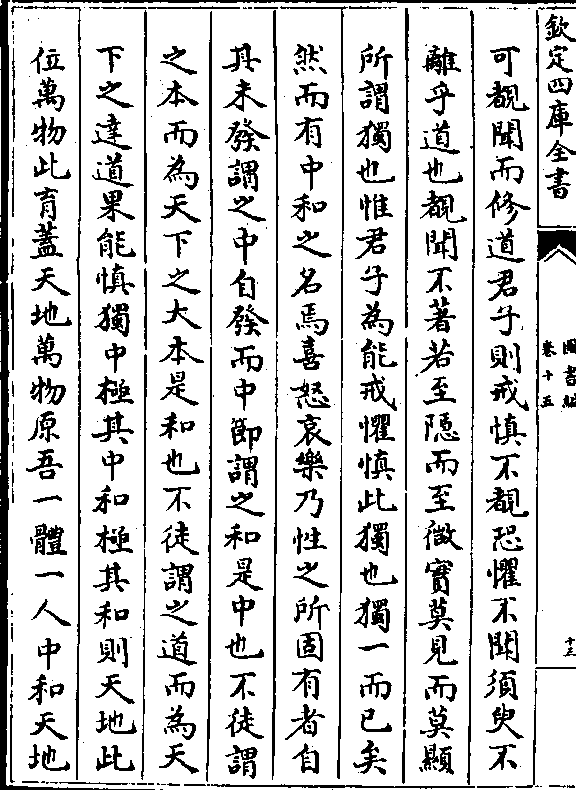 欽定四庫全書
圖書編
卷十五
十三
可覩聞而修道君子則戒慎不覩恐懼不聞須臾不
離乎道也覩聞不著若至隱而至微實莫見而莫顯
所謂獨也惟君子為能戒懼慎此獨也獨一而已矣
然而有中和之名焉喜怒哀樂乃性之所固有者自
其未發謂之中自發而中節謂之和是中也不徒謂
之本而為天下之大本是和也不徒謂之道而為天
下之達道果能慎獨中極其中和極其和則天地此
位萬物此育蓋天地萬物原吾一體一人中和天地